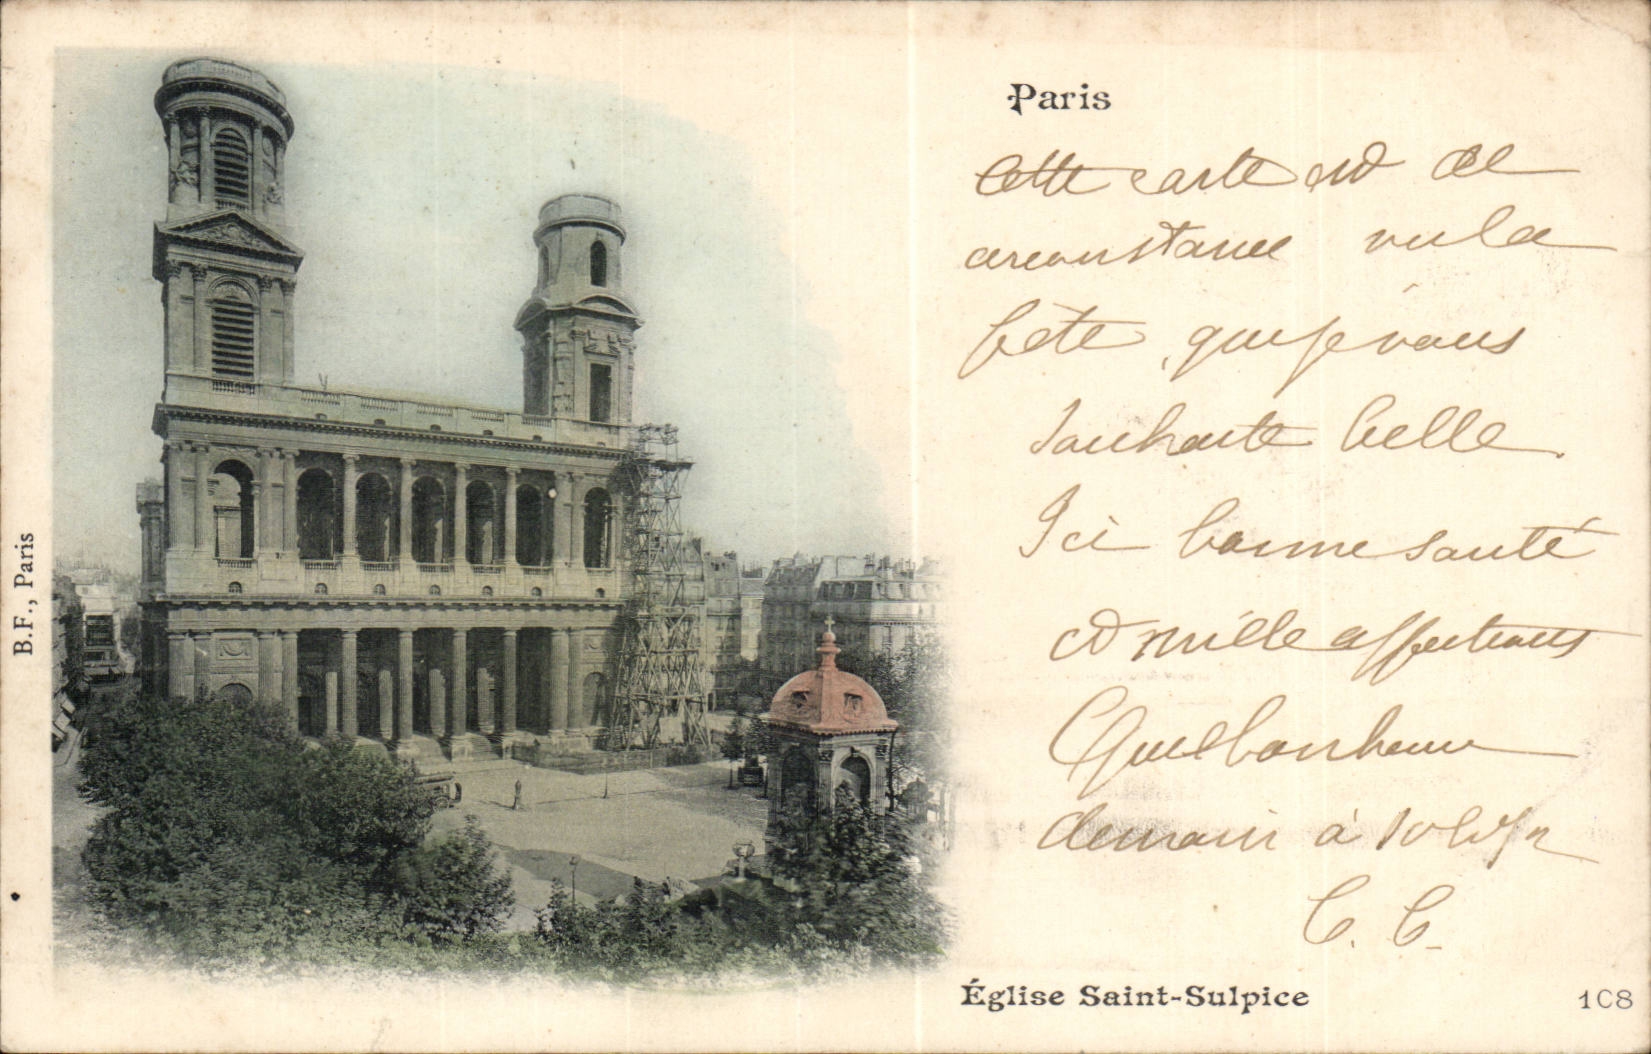 Paris
Cette carte est de
circonstance vu la
fête, que je vous
souhaite belle.
Ici bonne santé
et mille affections
Quel bonheur
demain à 10h
C. C.
Église Saint-Sulpice
108
B.F., Paris